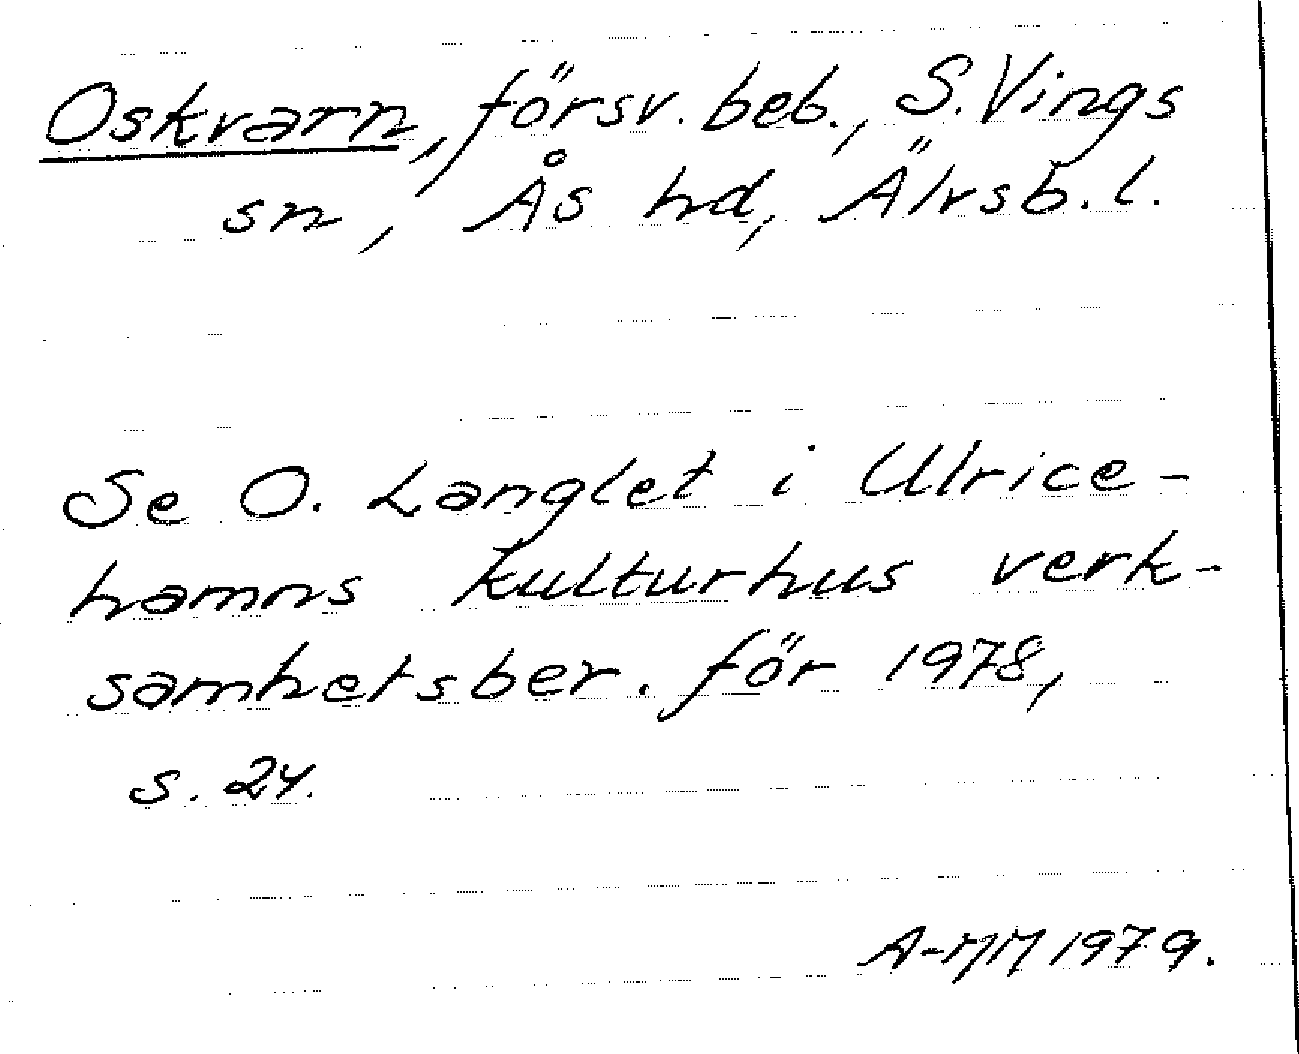 Oskvarn, försv. beb., S. Vings
sn, Ås hd, Älvsb. l.
Se O. Langlet i Ulrice-
hamns kulturhus verk-
samhetsber. för 1978,
s. 24.
A-MM 1979.